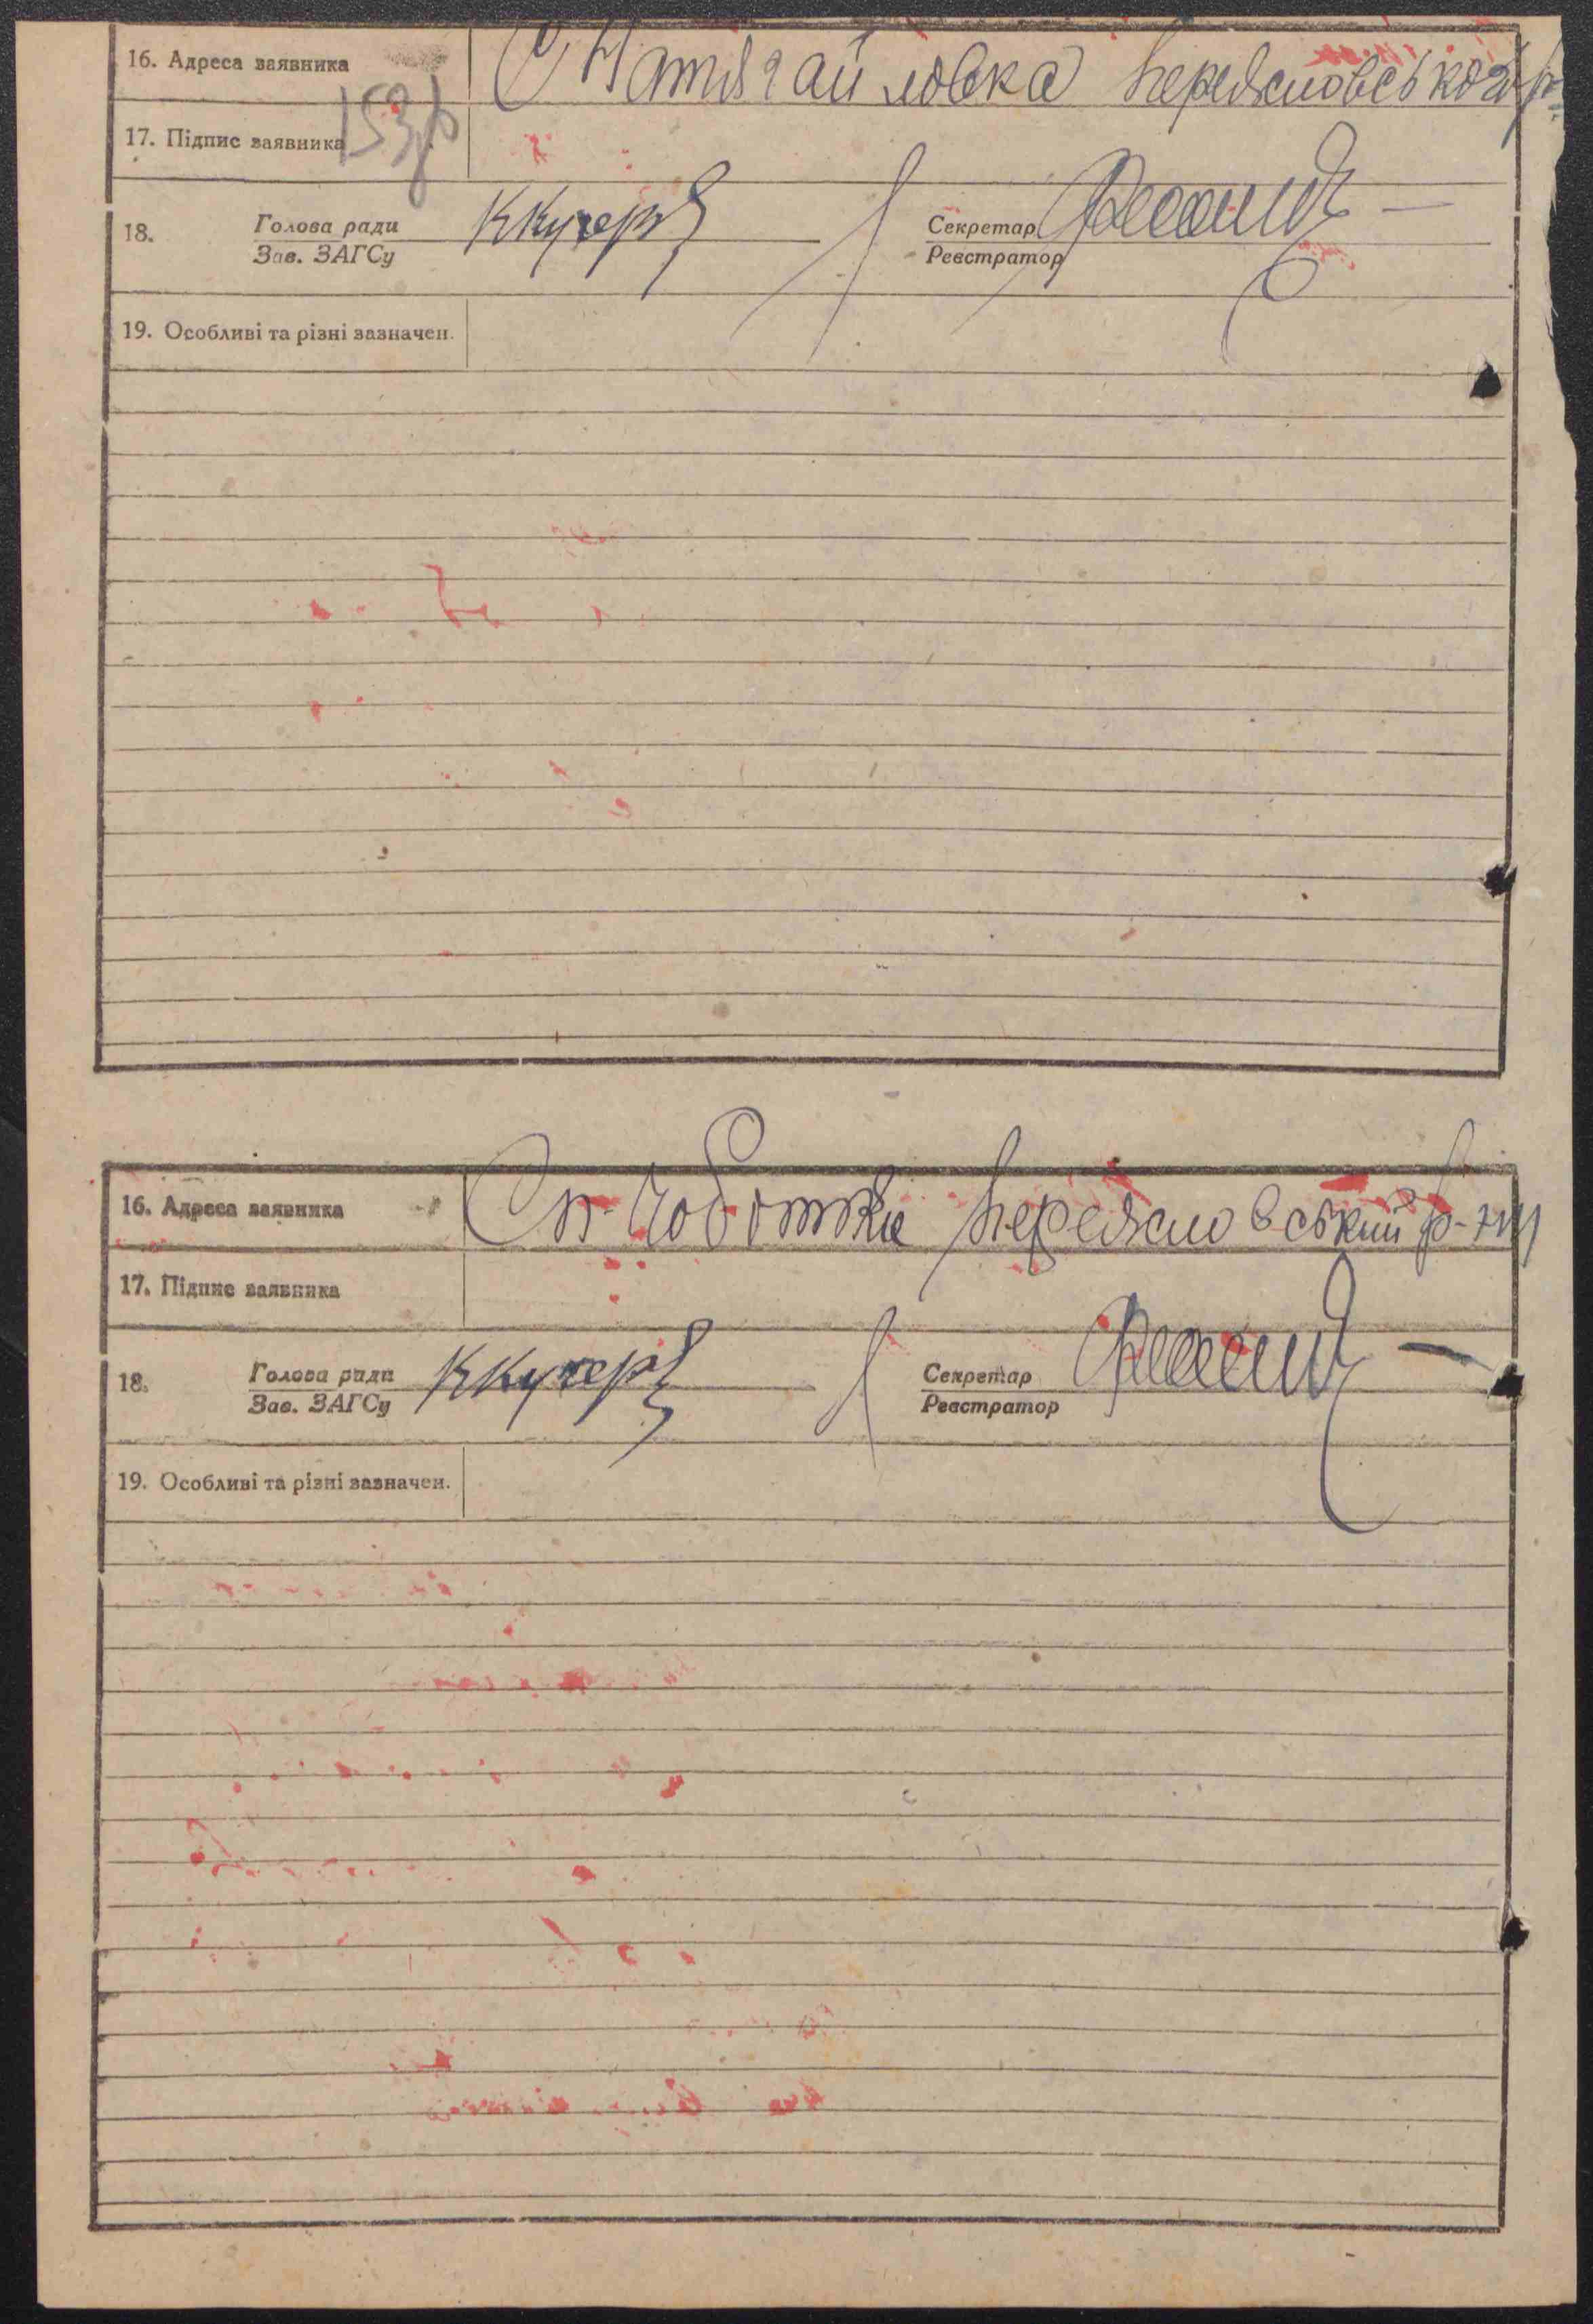 16. Адреса заявника С Натягайловка Переясловського р
153
17. Підпис заявника
18. Голова ради ККучер Секретар
Зав. ЗАГСу Реєстратор
19. Особливі та різні зазначен.
16. Адреса заявника Переясловський р-н
17. Підпис заявника
18. Голова ради ККучер Секретар
Зав. ЗАГСу Реєстратор
19. Особливі та різні зазначен.